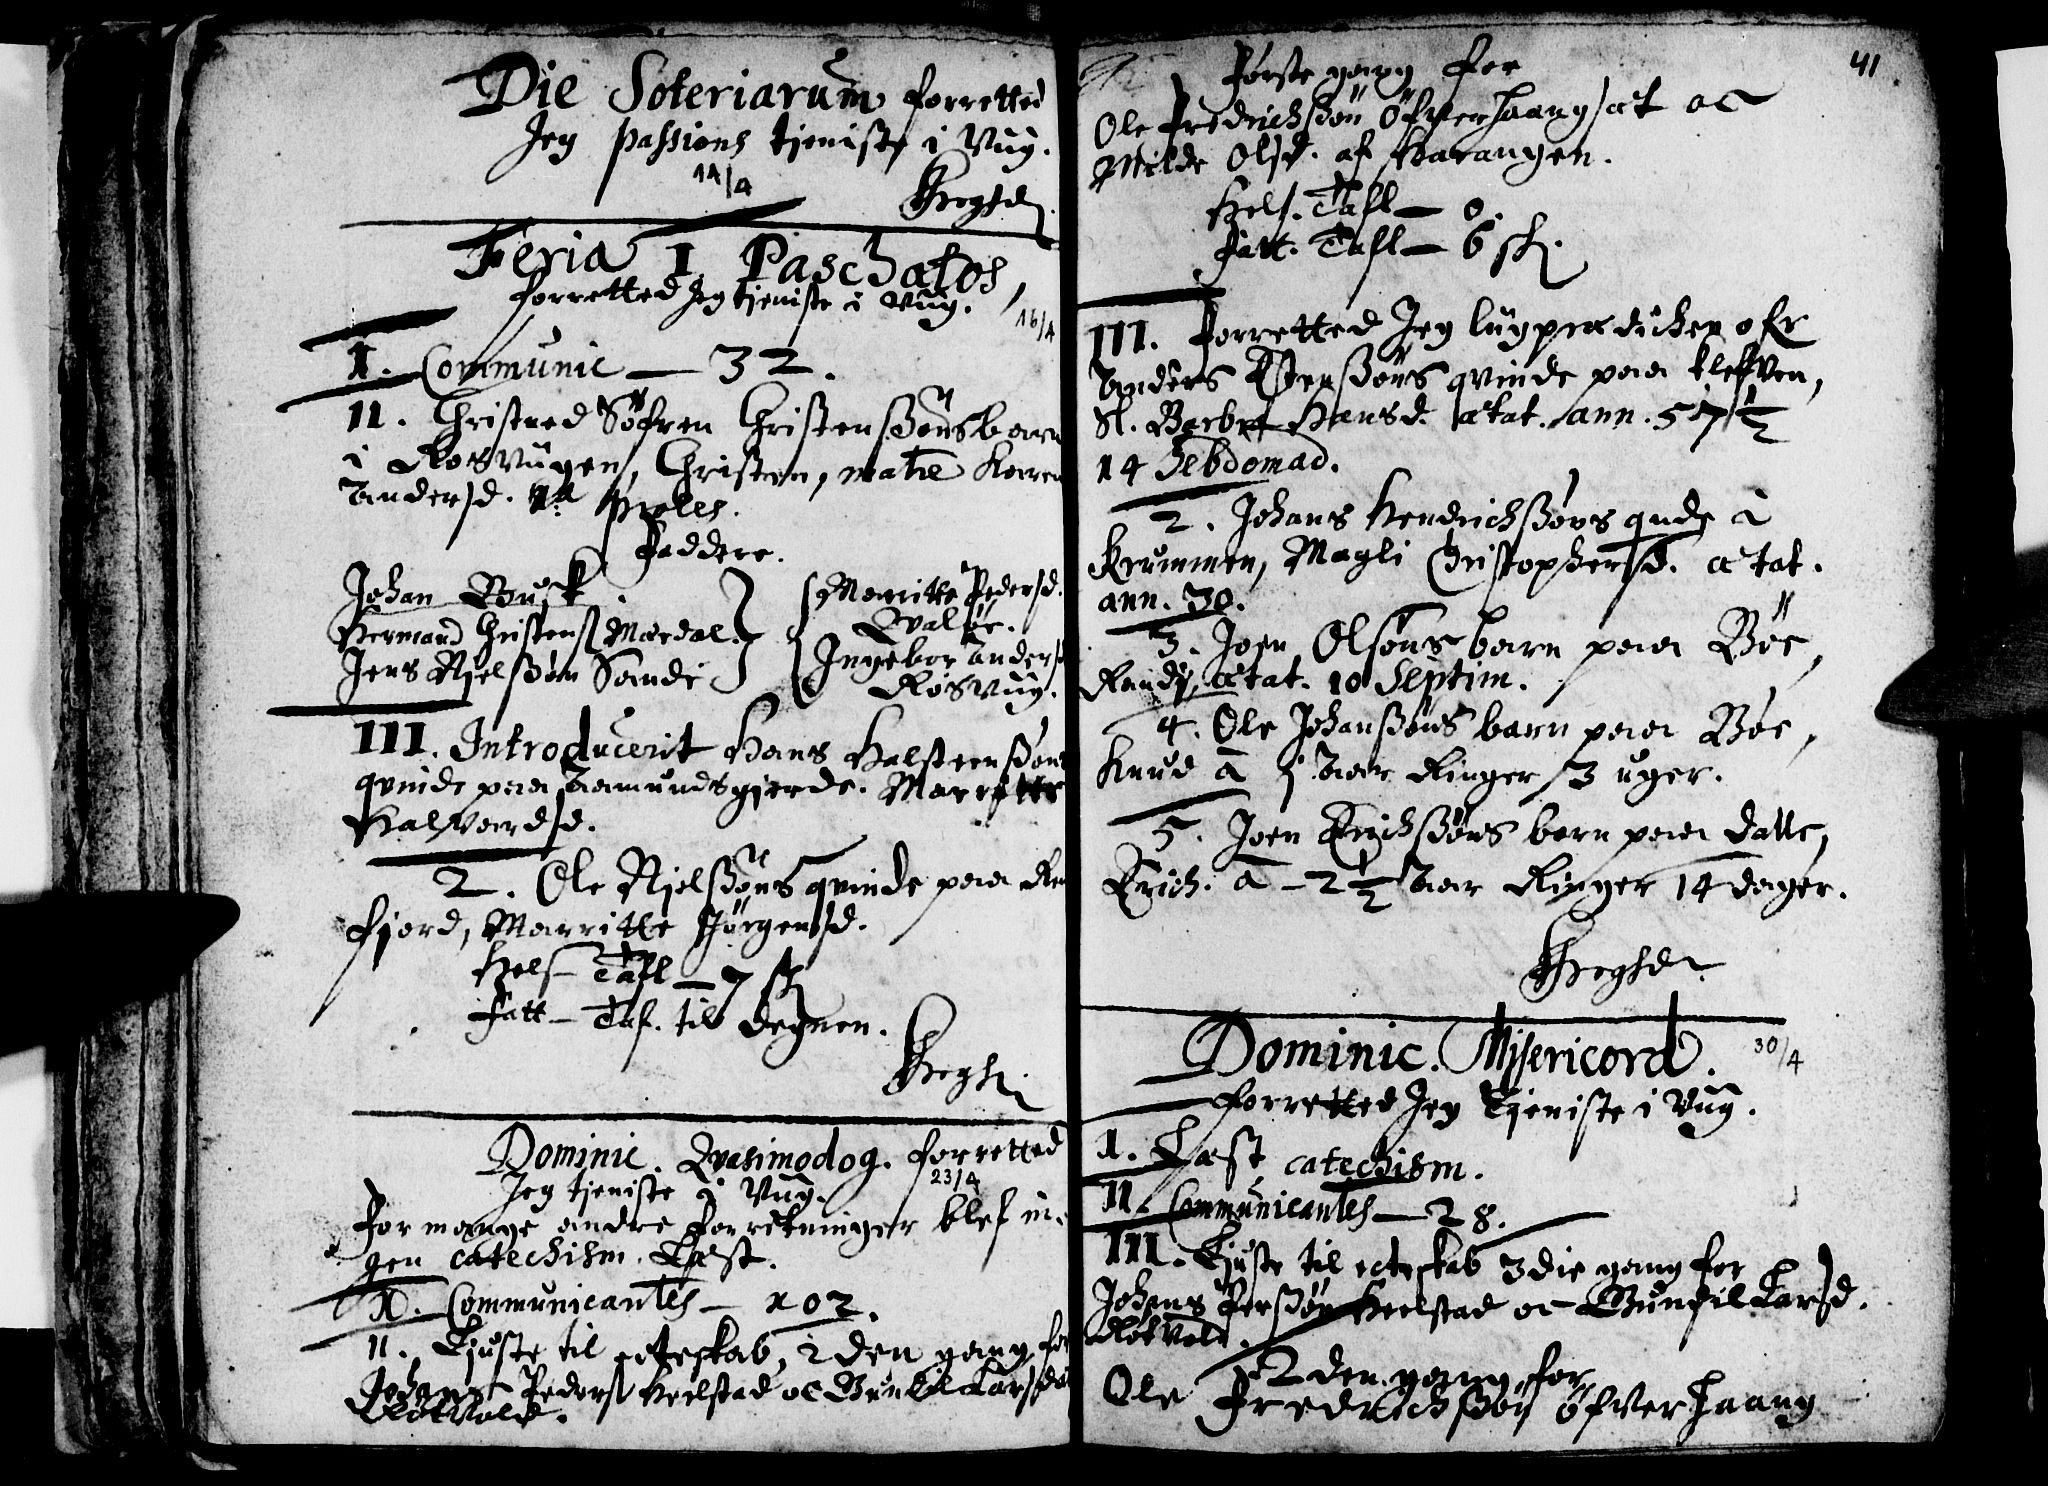 Die Soteriarum forretted
Jeg passions tjeniste i Vüg.
14/4
Feria I Paschatos,
forretted Jeg tjeniste i Vüg.
16/4
I. Communic — 32.
II. Christned Söfren Christenssöns barn
i Rosvügen, Christen, matre Karen
Andersd. proles.
Faddere.
Johan Busk.
Hermand Christens Mærdal.
Jens Njelssön Sandi
Marritte Pedersd.
Qvalöe.
Ingebor Anders
Rösvüg.
III. Introducerit Hans Halsteenssöns
qvinde paa Aamundsgierde. Marritte
Halvordsd.
2. Ole Njelssöns qvinde paa
fjord, Marritte Jörgensd.
Hels Tafl — 7 sk
Fatt — Taf. til degnen.
Dominic. Qvasimodog. forretted
23/4
Jeg tjeniste i Vüg.
For mange andre forretninger blef in-
gen catechism. Læst.
I. Communicantes — 102.
II. Ljuste til ecteskab, 2den gang for
Johans Peders Heelstad oc Gunil Larsd
Röttvold.
41
Förste gang for
Ole Fredrichssön Öfverhaangsæt oc
Milde Olsd. af Harangen.
Hels. Tafl — 0.
Fatt. Tafl — 6 sk.
III. Forretted Jeg lügprædicken ofr
Anders Estenssöns qvinde paa Klefven,
Sl. Barbra Hansd. ætat. ann. 57 1/2
14 Hebdomad.
2. Johans Hendrichssöns qvde i
Krummen, Magli Christophersd. ætat.
ann. 30.
3. Joen Olsöns barn paa Böe,
Randj, ætat. 10 Septim.
4. Ole Johanssöns barn paa Böe,
Knud a j Aar Ringer 3 uger.
5. Joen Erichssöns barn paa dalle,
Erich. a — 2 1/2 Aar Ringer 14 dager.
Dominic. Misericord.
30/4
forretted Jeg Tjeniste i Vüg.
I. Læst catechism.
II. Communicantes — 28.
III. Ljuste til ecteskab 3die gang for
Johans Perssön Heelstad oc Gunhil Larsd.
Röttvold.
2den gang for
Ole Fredrichssön Öfverhaang